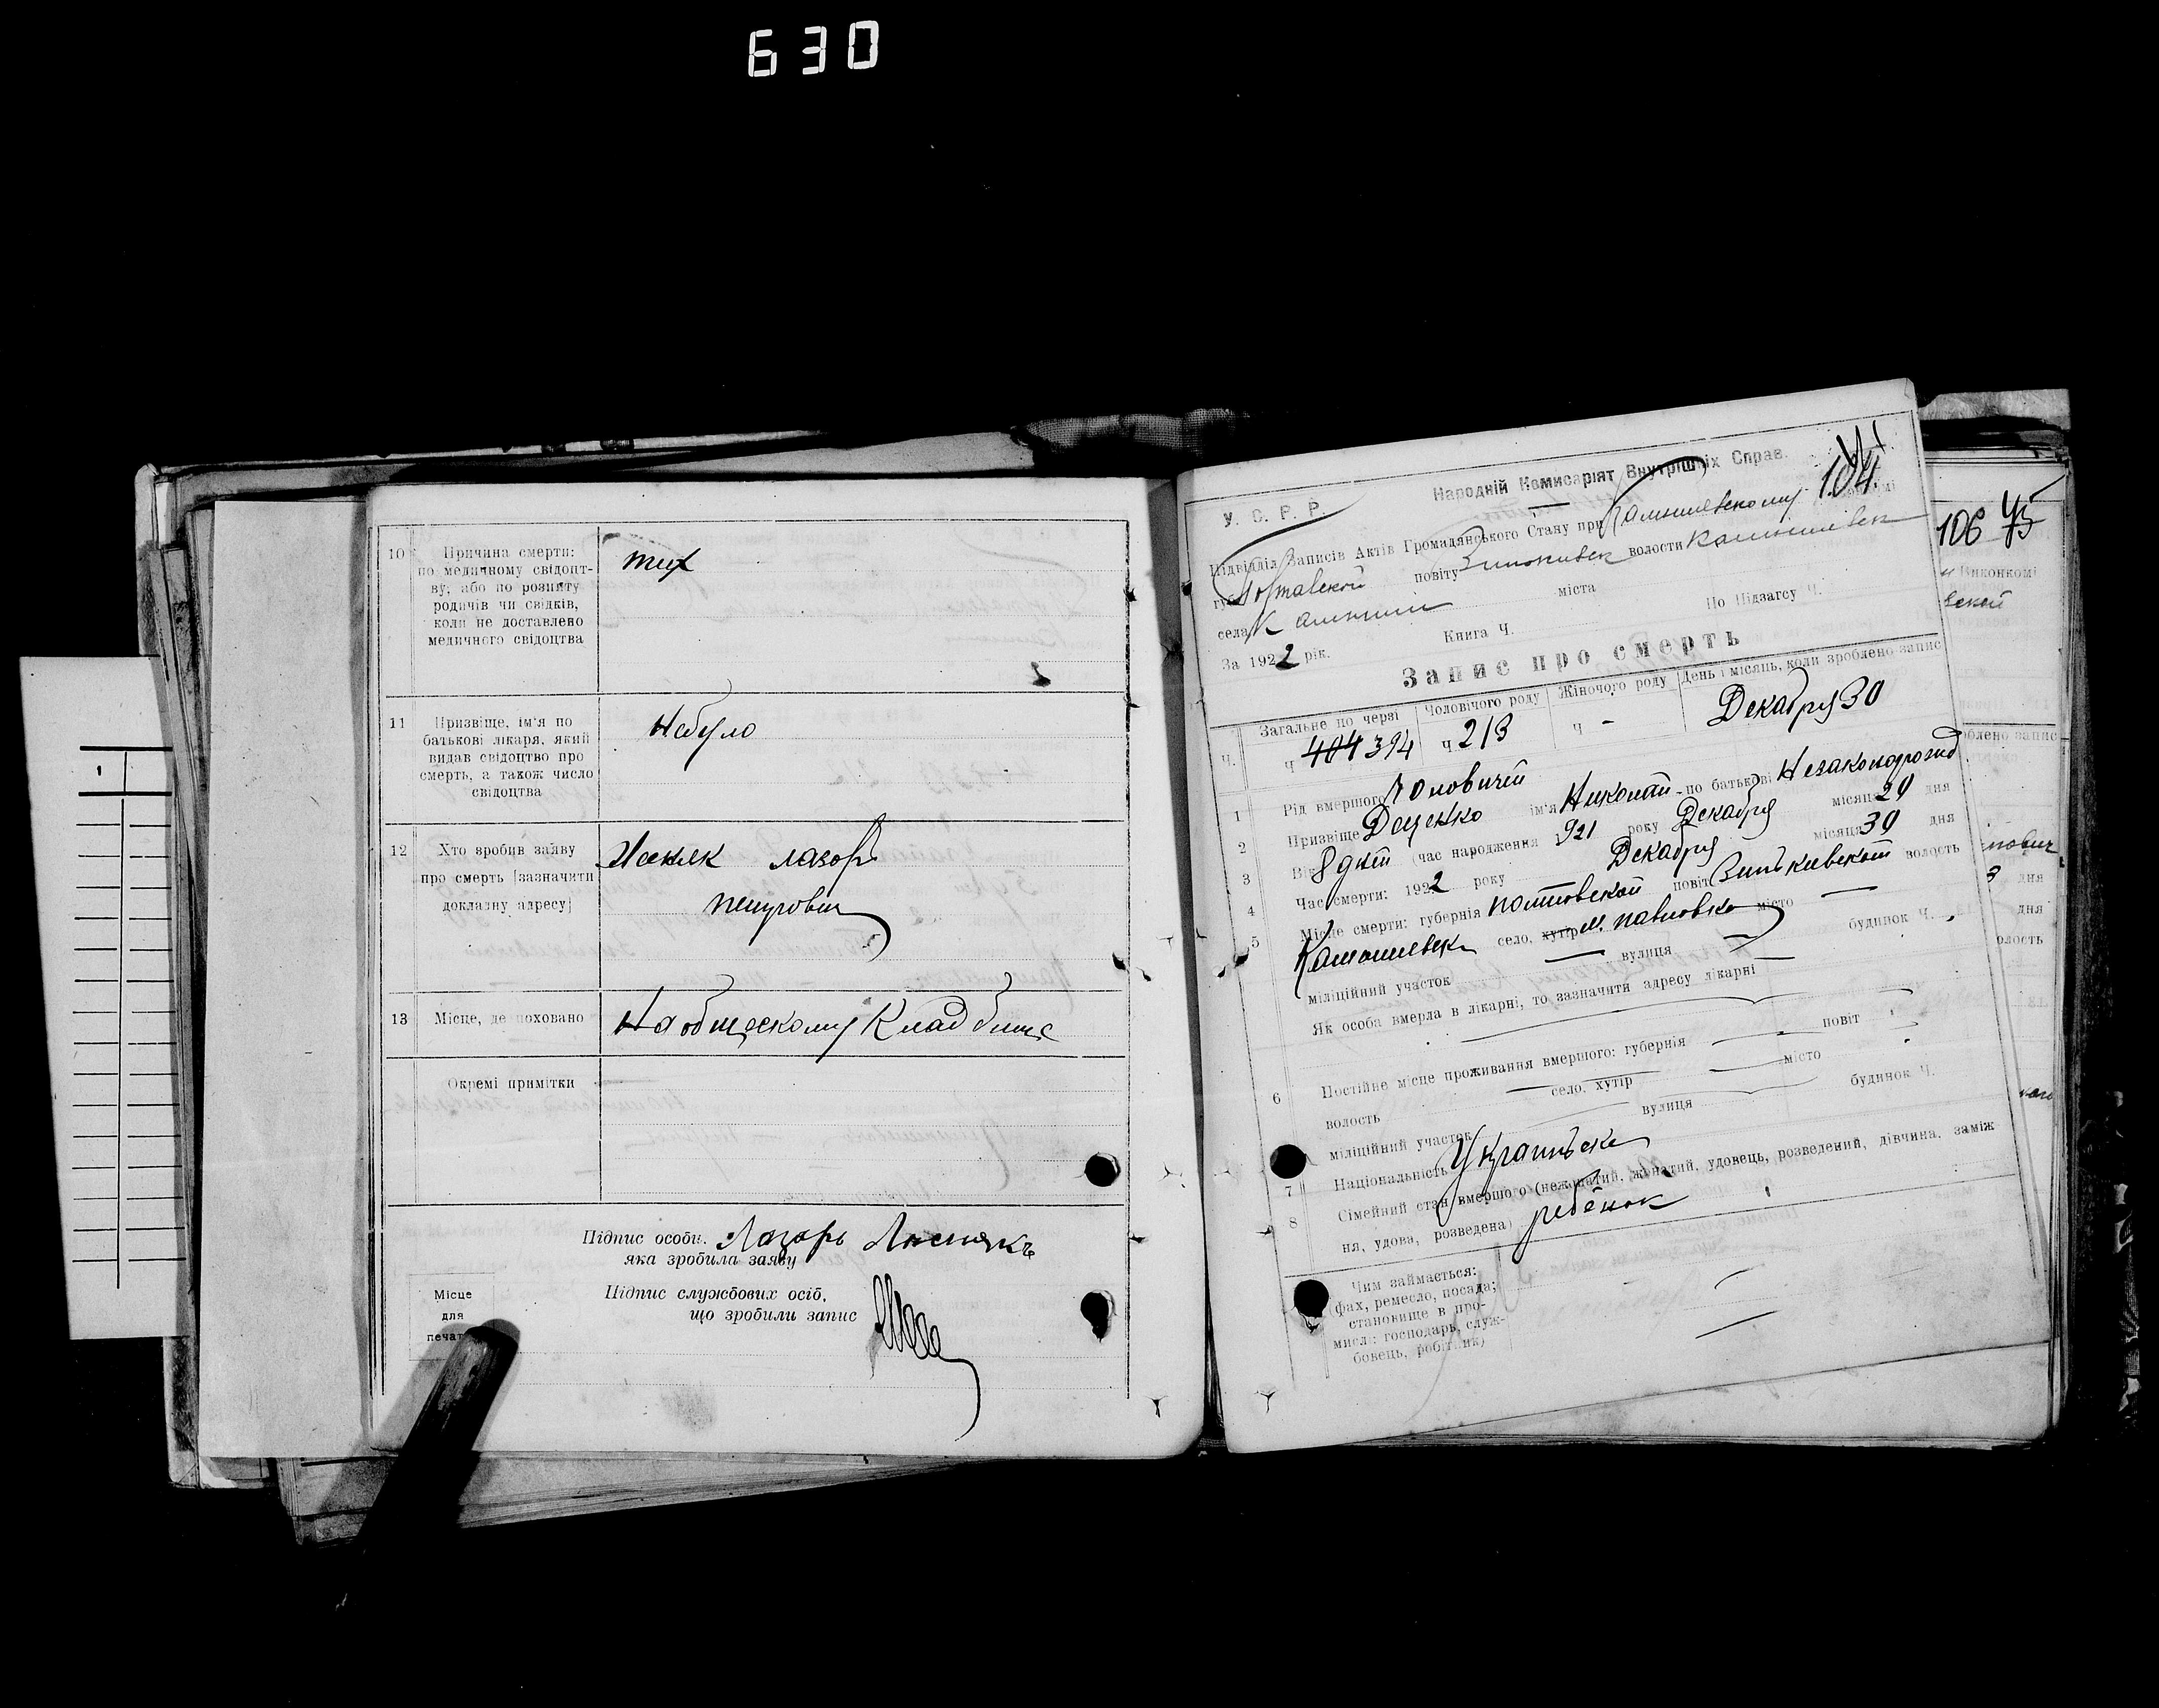 630
10 Причина смерти: по медичному свідоцт-
ву, або по розпиту
родичів чи свідків,
коли не доставлено
медичного свідоцтва
тиф
11 Призвіще, ім'я по
батькові лікаря, який
видав свідоцтво про
смерть, а також число
свідоцтва
Небуло
12 Хто зробив заяву
про смерть (зазначити
докладну адресу)
лазорь
13 Місце, де поховано
На общескому Кладбище
Окремі примітки
Підпис особи, Лазорь
яка зробила заяву
Місце
для
печат
Підпис службових осіб,
що зробили запис
У. С. Р. Р.
Народній Комисаріят Внутрішніх Справ.
104
Підвідділ Записів Актів Громадянського Стану при Камышевскому
губ. Полтавской повіту Зиньковск волости Камышевск
села Камыши міста
За 1922 рік. Книга Ч. По Підзагсу Ч.
Запис про смерть
Ч. Загальне по черзі Чоловічого роду Жіночого роду День і місяць, коли зроблено запис
ч 404 394 ч 213 ч - Декабря 30
1 Рід вмершого
2 Призвіще Доценко ім'я Николай по батькові Незаконорожд
3 Вік 8 дней (час народження 1921 року Декабря місяця 20 дня
4 Час смерти: 1922 року Декабря місяця 30 дня
5 Місце смерти: губернія повіт Зиньковской волость
Камышевск село, хутір павловка місто
міліційний участок вулиця будинок Ч.
Як особа вмерла в лікарні, то зазначити адресу лікарні
6 Постійне місце проживання вмершого: губернія повіт
волость село, хутір місто
міліційний участок вулиця будинок Ч.
7 Національність Украинська
8 Сімейний стан вмершого (нежонатий, жонатий, удовець, розведений, дівчина, заміж-
ня, удова, розведена) ребёнок
Чим займається:
(фах, ремесло, посада;
становище в про-
мислі: господарь, служ-
бовець, робітник)
106 45
Виконкомі
вской
облено запис
дня
дня
олость